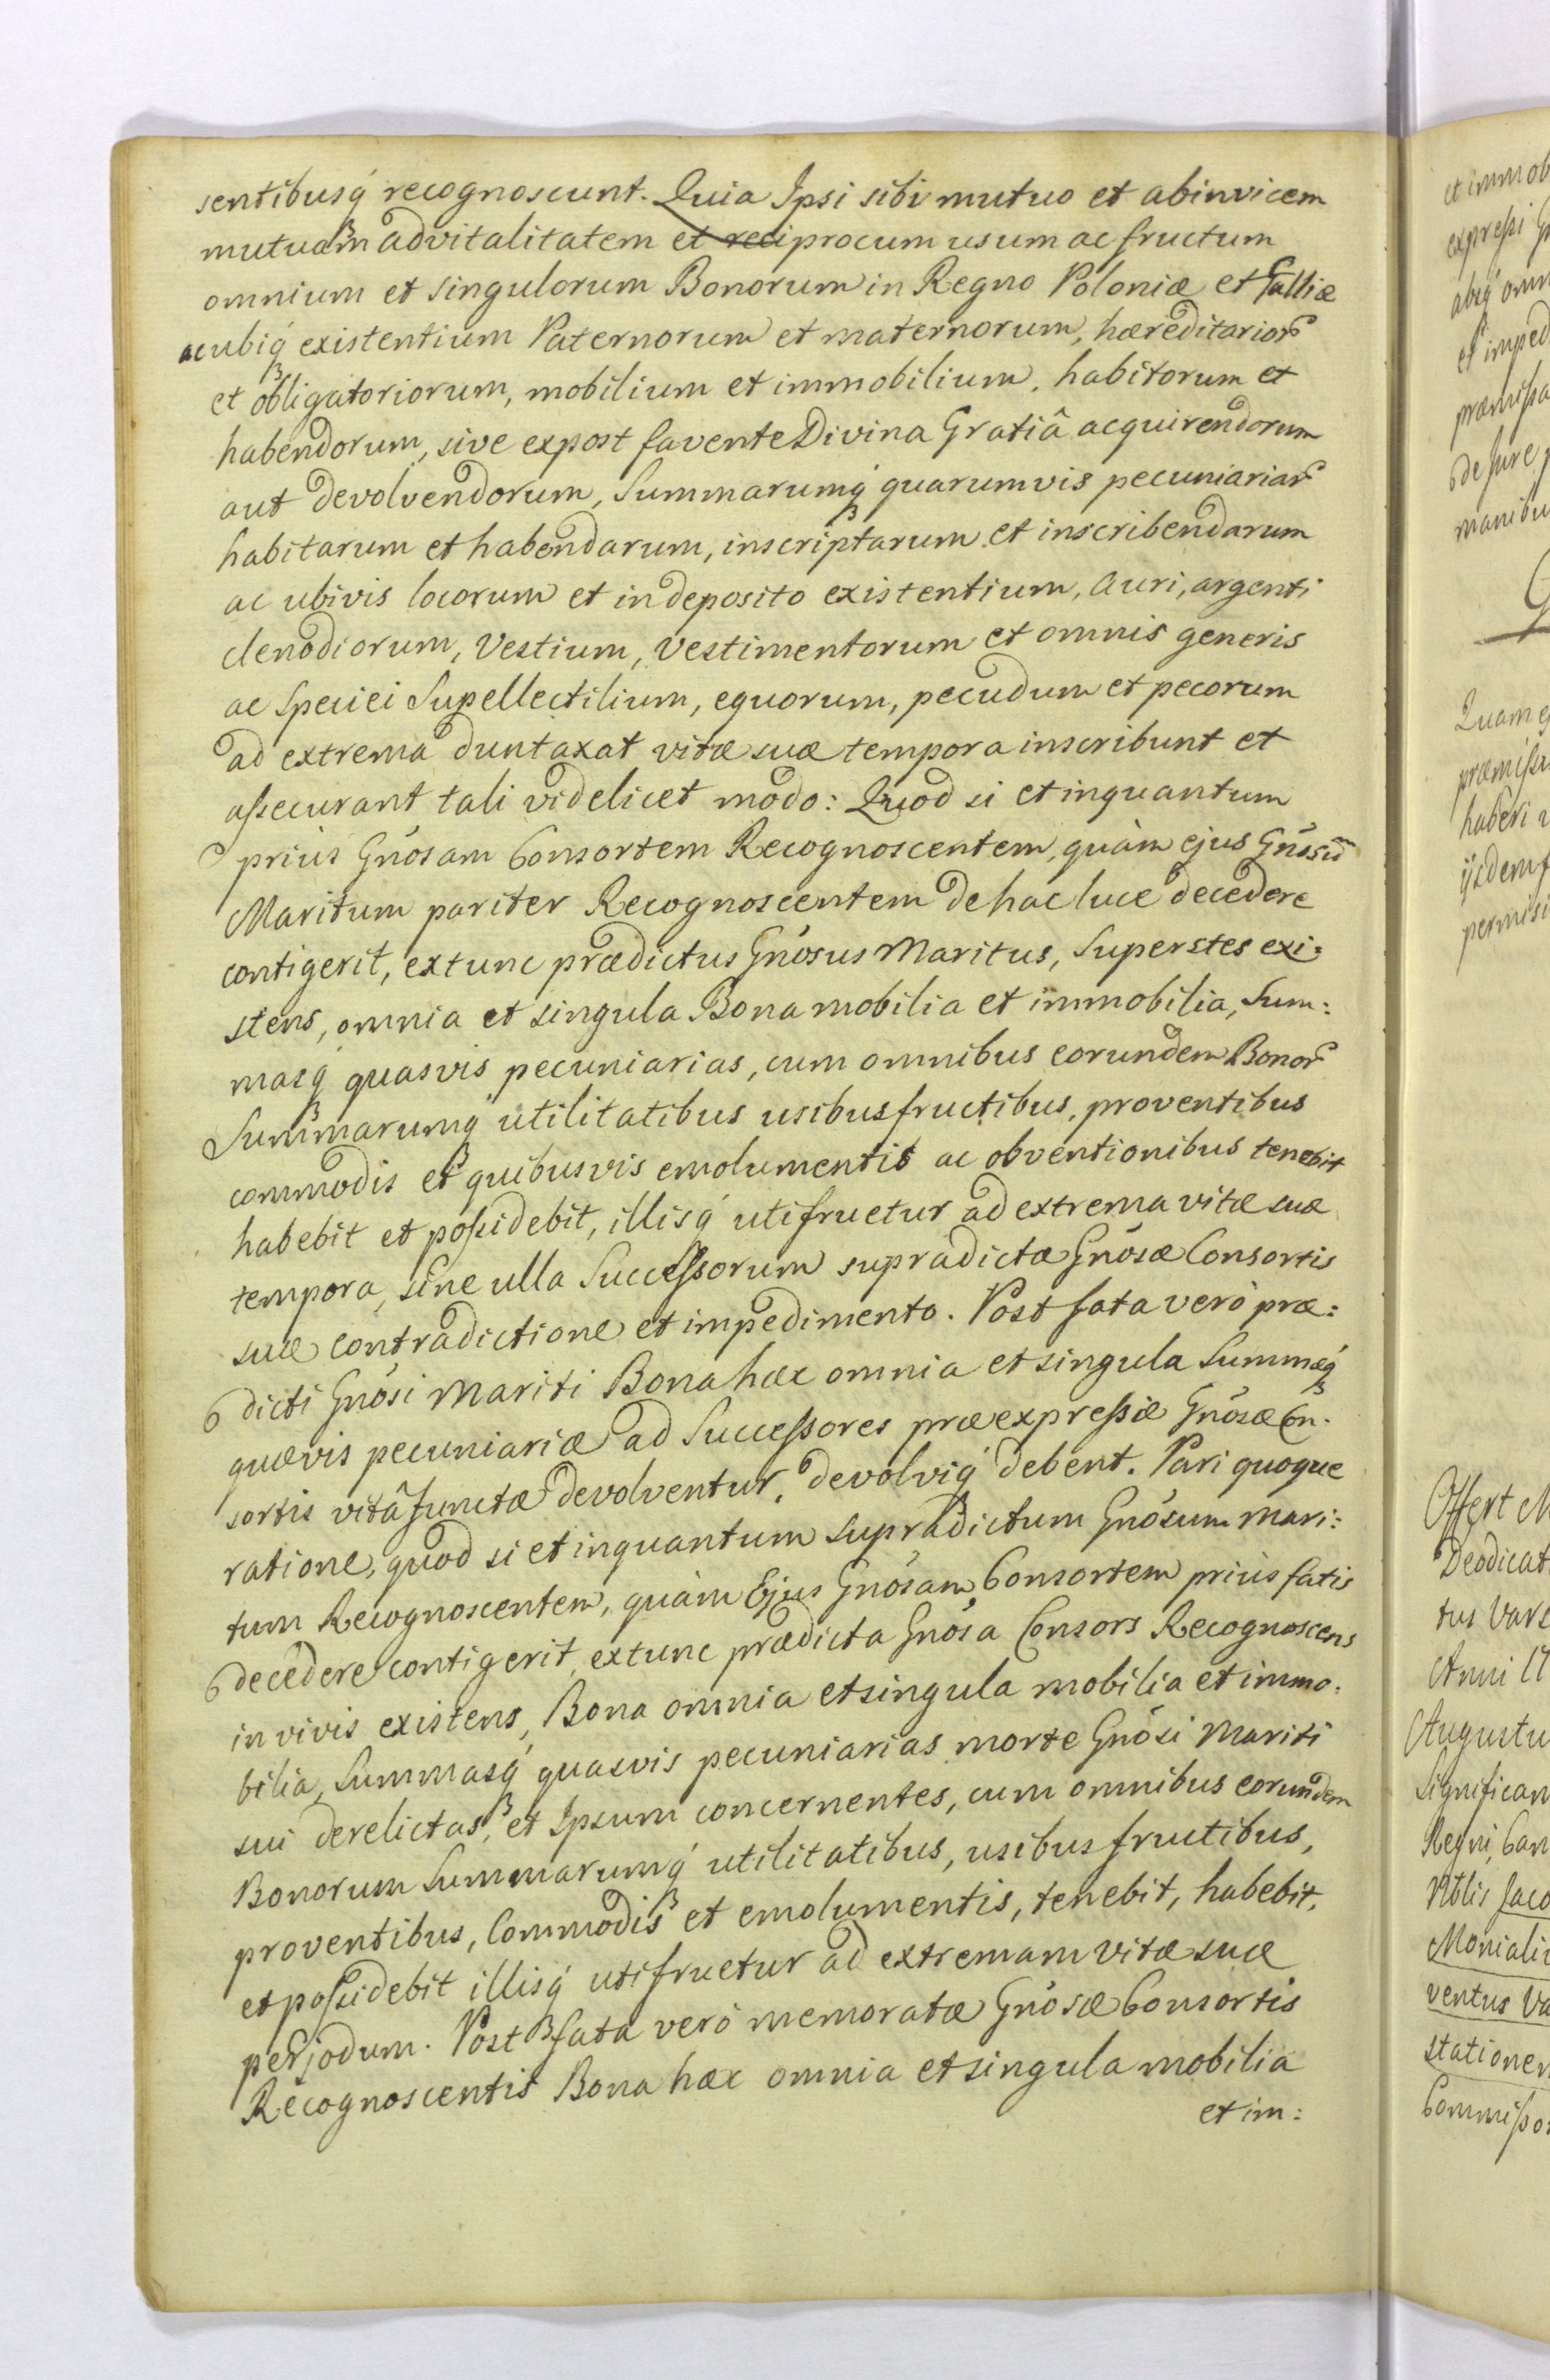 sentibusq́ recognoscunt. Quia Ipsi sibi mutuo et abinvicem
mutuam advitalitatem et reciprocum usum ac fructum
omnium et singulorum Bonorum in Regno Poloniæ et Galliæ
ac ubiq́ existentium Paternorum et maternorum, hæreditarior
et obligatoriorum, mobilium et immobilium, habitorum et
habendorum, sive expost favente Divina Gratiâ acquirendorum
aut devolvendorum, Summarumq́ quarumvis pecuniariar
habitarum et habendarum, inscriptarum et inscribendarum
ac ubivis locorum et in deposito existentium, Auri, argenti
clenodiorum, Vestium, Vestimentorum et omnis generis
ac Speciei Supellectilium, equorum, pecudum et pecorum
ad extrema duntaxat vitæ suæ tempora inscribunt et
assecurant tali videlicet modo: Quod si et inquantum
prius Gnósam Consortem Recognoscentem, quàm ejus Gnósū
Maritum pariter Recognoscentem de hac luce decedere
contigerit, extunc prædictus Gnósus Maritus, Superstes exi:
stens, omnia et singula Bona mobilia et immobilia, Sum:
masq́ quasvis pecuniarias, cum omnibus eorundem Bonor
Summarumq́ utilitatibus usibusfructibus, proventibus
commodis et quibusvis emolumentis ac obventionibus tenebit
habebit et possidebit, illisq́ utifruetur ad extrema vitæ suæ
tempora, sine ulla Successorum supradictæ Gnósæ Consortis
suæ contradictione et impedimento. Post fata verò præ:
dicti Gnósi Mariti Bona hæc omnia et singula Summæq́
quævis pecuniariæ ad Successores præexpressæ Gnósæ Con-
sortis vitâ functæ devolventur, devolviq́ debent. Pari quoque
ratione, quod si et inquantum supradictum Gnósum Mari:
tum Recognoscentem, quàm Ejus Gnósam Consortem priùs fatis
decedere contigerit, extunc prædicta Gnósa Consors Recognoscens
in vivis existens, Bona omnia et singula mobilia et immo:
bilia, Summasq́ quasvis pecuniarias morte Gnósi Mariti
sui derelictas, et Ipsum concernentes, cum omnibus eorundem
Bonorum Summarumq́ utilitatibus, usibusfructibus,
proventibus, Commodis et emolumentis, tenebit, habebit,
et possidebit illisq́ utifruetur ad extremam vitæ suæ
perjodum. Post fata verò memoratæ Gnósæ Consortis
Recognoscentis Bona hæc omnia et singula mobilia
et im:
et immob
expressi
abiq́ omn
et imped
præmissa
de jure
manibu
Quam
præmissa
haberi
ijsdem
permisi
Offert M
Deodicat
tus Vars
Anni 17
Augustu
Significan
Regni, Can
Moniali
ventus Va
stationem
Commissor